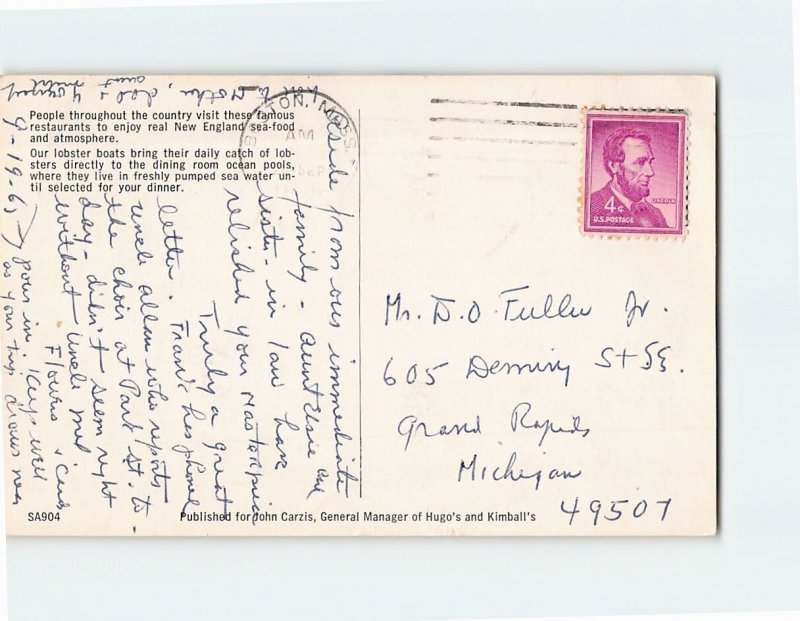 to Mother, dad &
aunt
9-19-65
People throughout the country visit these famous
restaurants to enjoy real New England sea-food
and atmosphere.
Our lobster boats bring their daily catch of lob-
sters directly to the dining room ocean pools,
where they live in freshly pumped sea water un-
til selected for your dinner.
aside from our immediate
family - Aunt Elsie and
sister-in law have
relished your masterpiece
Truly a great
letter. Frank has phoned
uncle allan who reports
the choir at Park St. to-
day - didn't seem right
without uncle
Flowers & cards
pour in. Keep well
as your trip draws near
BOSTON, MASS
AM
SEP
4¢
LINCOLN
U.S. POSTAGE
Mr. D.O. Fuller Jr.
605 Deming St SE.
Grand Rapids
Michigan
49507
SA904
Published for John Carzis, General Manager of Hugo's and Kimball's